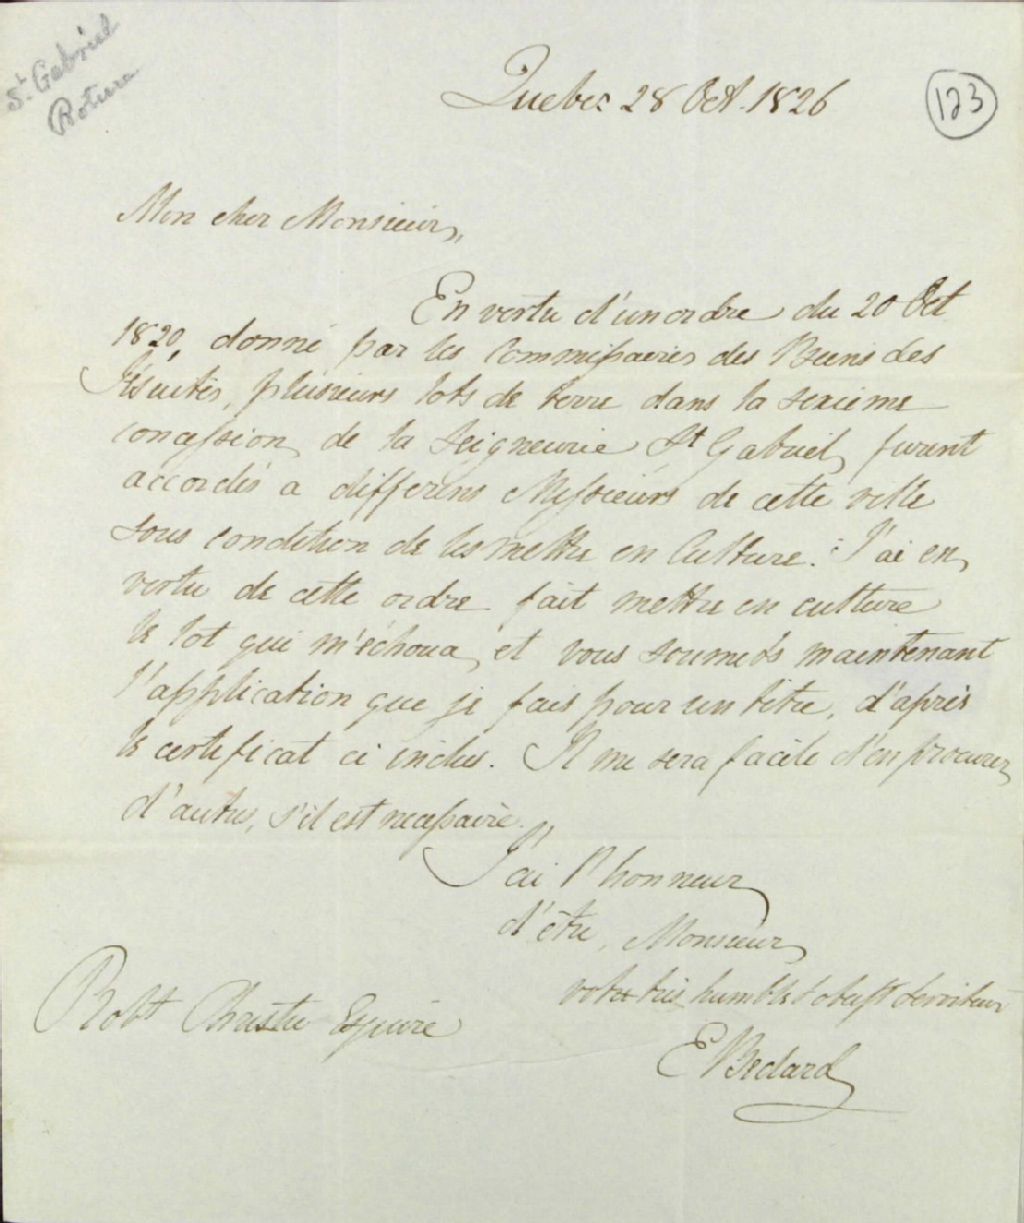 St. Gabriel
Roture
Quebec 28 Oct. 1826
123
Mon cher Monsieur,
En vertu d'un ordre du 20 Oct
1820, donné par les Commissaires des Biens des
Jésuites, plusieurs lots de terre dans la sexième
concession de la Seigneurie St Gabriel, furent
accordés a differens Messieurs de cette ville
sous condition de les mettre en Culture. J'ai en
vertu de cette ordre fait mettre en culture
le lot qui m'échoua, et vous soumets maintenant
l'application que je fais pour un titre, d'après
le certificat ci inclus. Il me sera facile d'en procurer
d'autres, s'il est necessaire.
J'ai l'honneur
d'être, Monsieur,
votre très humble & obeist Serviteur
E Bedard
Robt Christie Esquire